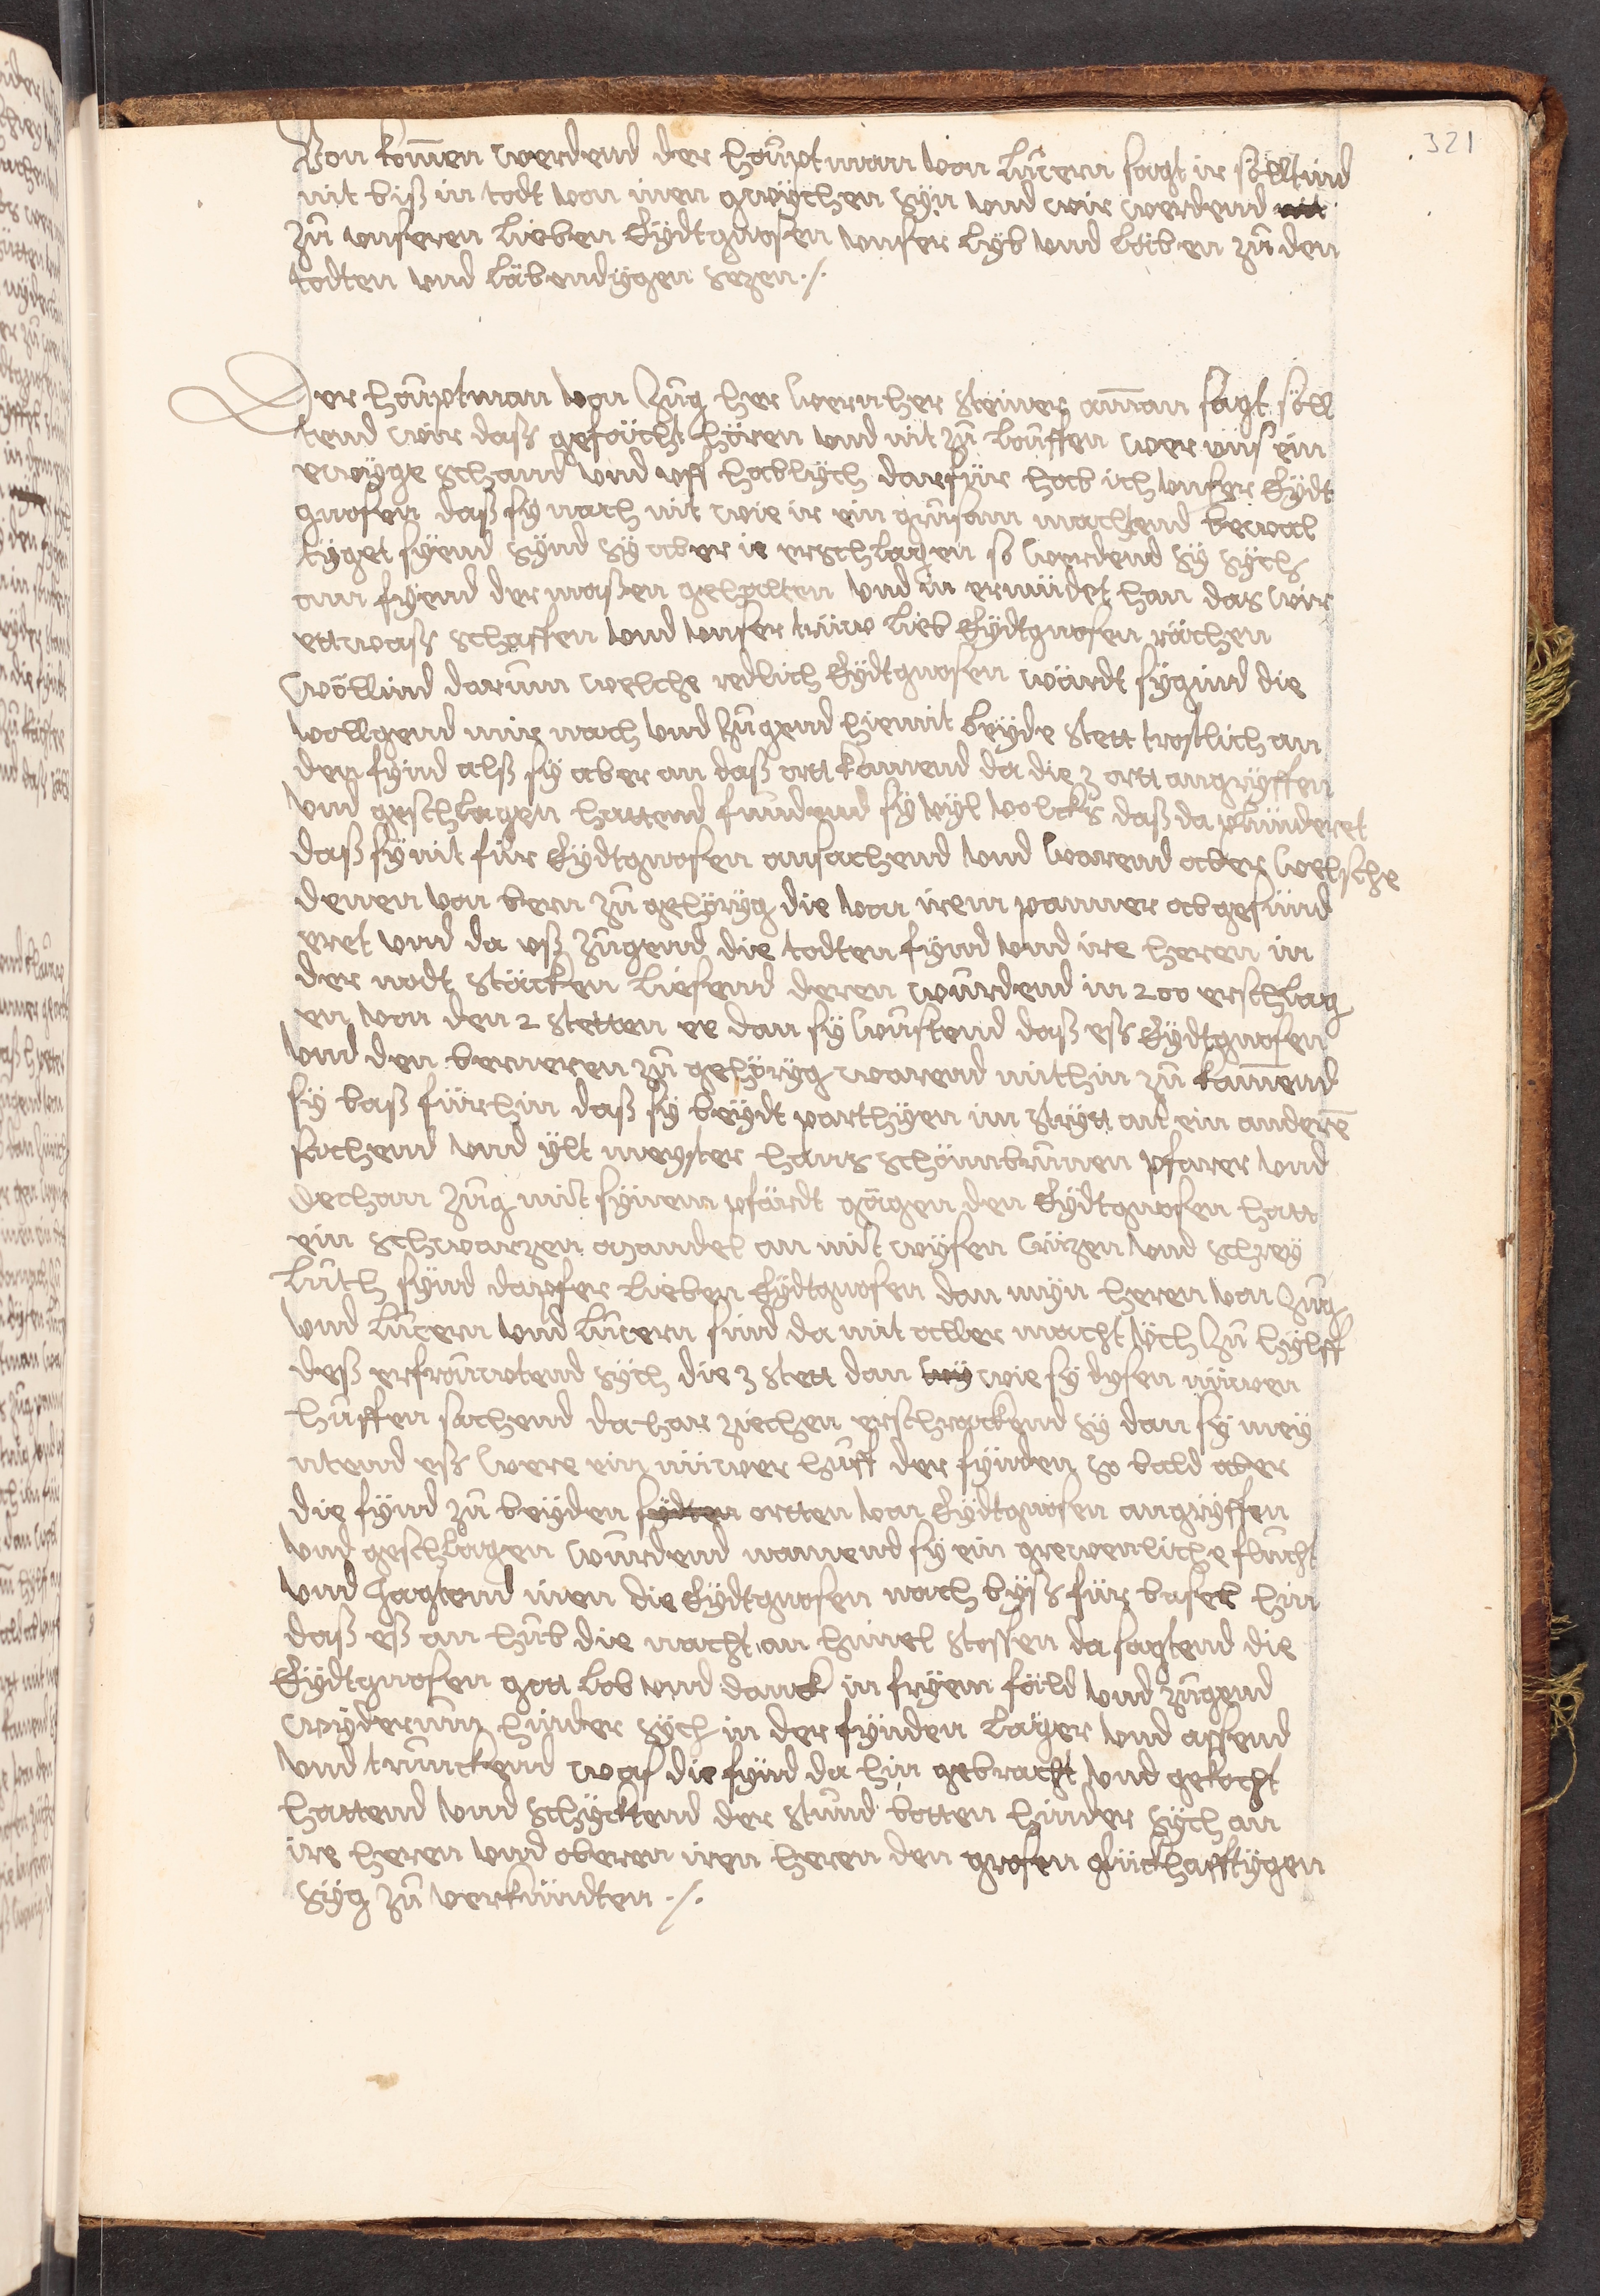 321
Von komen werdend der houptman von Lucern sagt ir söltind
nit biß in todt von inen gwÿchen sÿn und wir werdend
zů unseren lieben Eÿdtgnosen unser lÿb und läben zů den
todten und läbendÿgen sezen ·/·
Der houptman von Zug her wernher steiner aman sagt söll
tend wir dass gefächt hören und nit zů louffen wer uns ein
ewÿge schand und uff hoblÿch darfür hab ich unser Eÿdt
gnosen daß sÿ nach nit wie ir ein grusam machtend bewal
tÿget sÿend sÿnd sÿ aber ie erschlagen so werdend sÿ sÿch
am fÿend der maßen gehalten und in ermüdet han das wir
ettwass schaffen und unser trüw lieb Eÿdtgnosen rächen
wöllind darum welche redlich Eÿdtgnosen wärdt sÿgind die
vollgend mir nach und zugend hiemit beÿde stett trostlich an
den fÿnd alß sÿ aber an daß ortt kamend da die 3 ortt angrÿffen
und geschlagen hattend fundend sÿ vÿl volcks daß da plünderet
daß sÿ nit für Eÿdtgnosen ansachend und warend aber welsche
denen von bern zů gehörÿg die von irem panner abgesünd
eret und da uß zugend die todten fÿnd und ire heren in
der nodt stäcken liesend deren wurdend in 200 erschlag
en von den 2 stetten ee dan sÿ wustend daß eß Eÿdtgnosen
und den berneren zů gehörÿg warend mithin zů kamend
sÿ baß fürhin daß sÿ beÿdt parthÿen im strÿtt ant ein andere
sachend und ÿlt meÿster hans schönbrunen pfarer und
dechan Zug mit sÿnem pfärdt gägen den Eÿdtgnosen hatt
ein schwarzen mandel an mit wÿsen crüzen und schreÿ
luth sÿnd dapfer lieben Eÿdtgnosen dan mÿn heren von Zug
und Lucern und Lucern sind da mit aller macht üch zů hÿlff
deß erfrouwtend sÿch die 3 stett dan wÿ wie sÿ dÿsen nüwen
huffen sachend dahar ziechen erschrackend sÿ dan sÿ meÿ
ntend eß were ein nüwer huff der fÿnden so bald aber
die fÿnd zů beÿden sÿdten ortten von Eÿdtgnosen angrÿffen
und geschlagen wurdend namend sÿ ein grewenliche flucht
und jagtend inen die Eÿdtgnosen nach bÿß für basel hin
daß eß an hub die nacht an himel stossen da sagtend die
Eÿdtgnosen gott lob und danck in frÿem fäld und zugend
wÿderum hinder sÿch in der fÿnden läger und assend
und trunckend was die fÿnd da hin gebracht und gekocht
hattend und schÿcktend der stund botten hinder sÿch an
ire heren und oberen iren heren den grosen glückhafftÿgen
sÿg zů verkündten ·/·